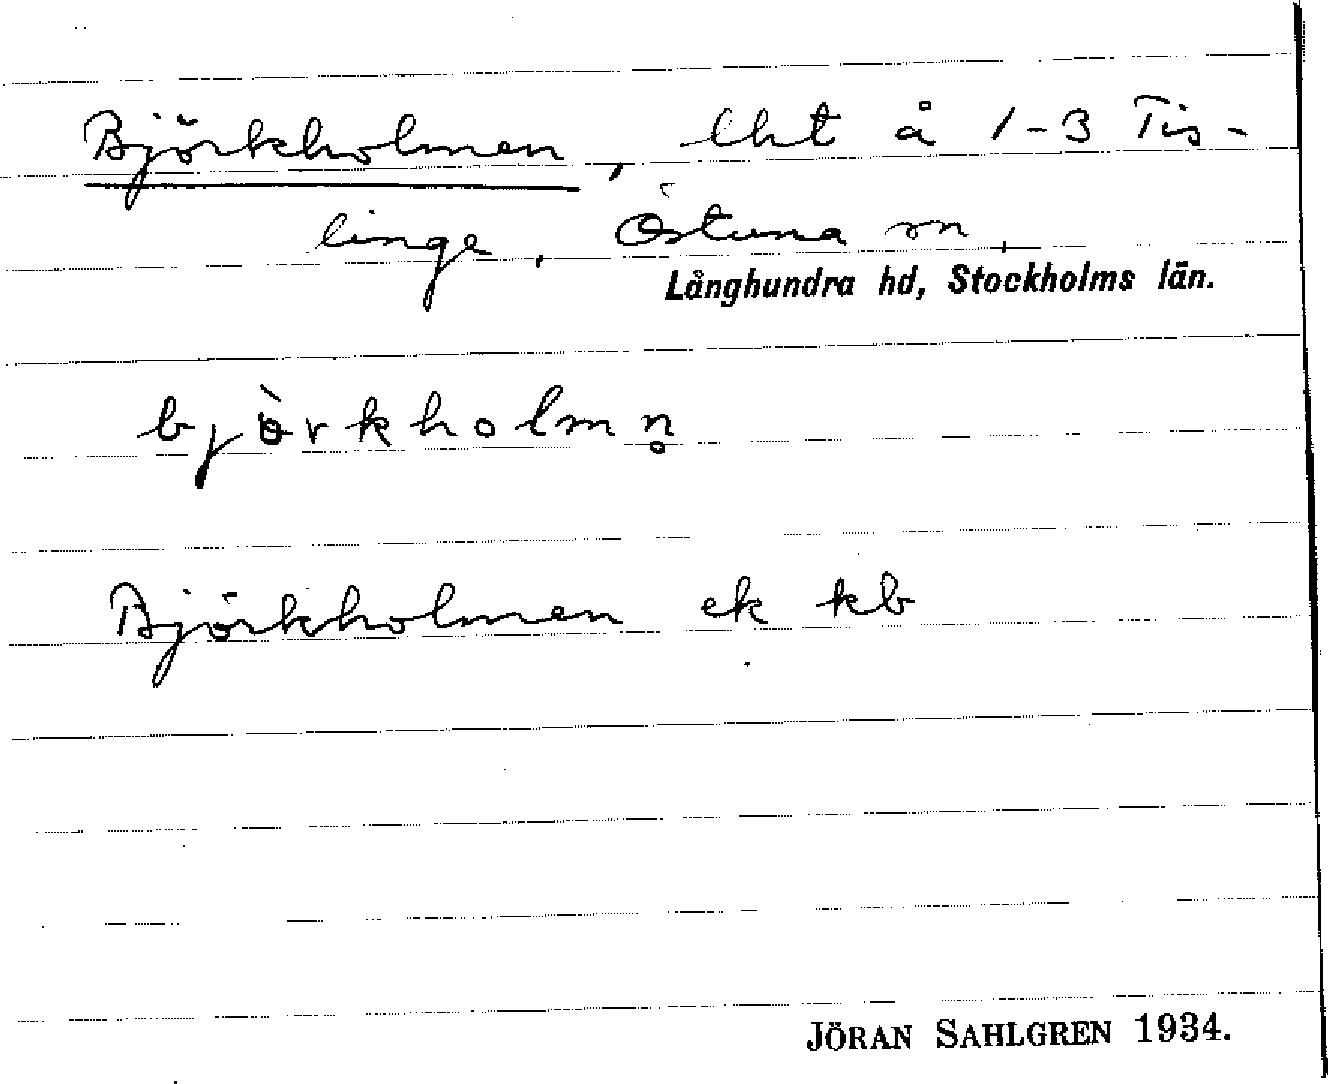 Björkholmen, lht å 1-3 Tis-
linge, Östuna sn,
Långhundra hd, Stockholms län.
bjòrkholmn̥
Björkholmen ek kb
JÖRAN SAHLGREN 1934.